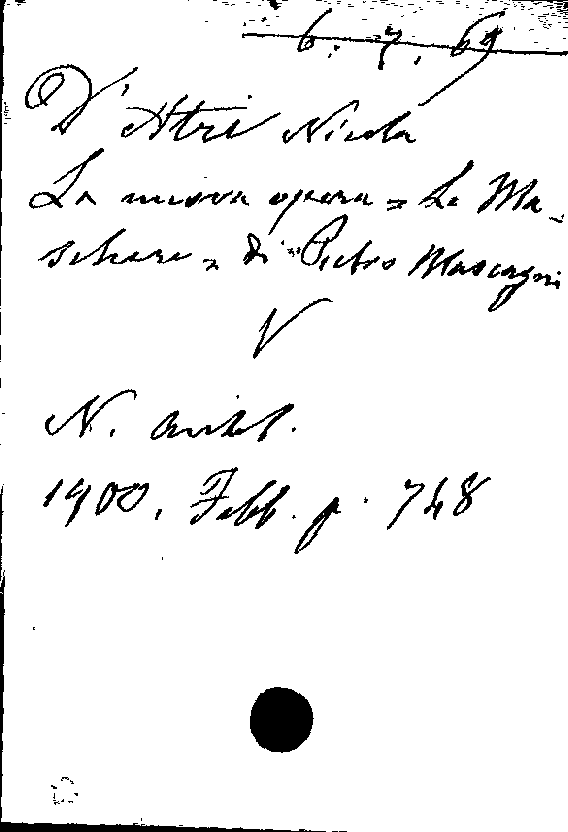 6. 7. 69
D'Atri Nicola
La nuova opera = Le Ma-
schere = di Pietro Mascagni
V
N. Antol.
1900. Febb. p. 748